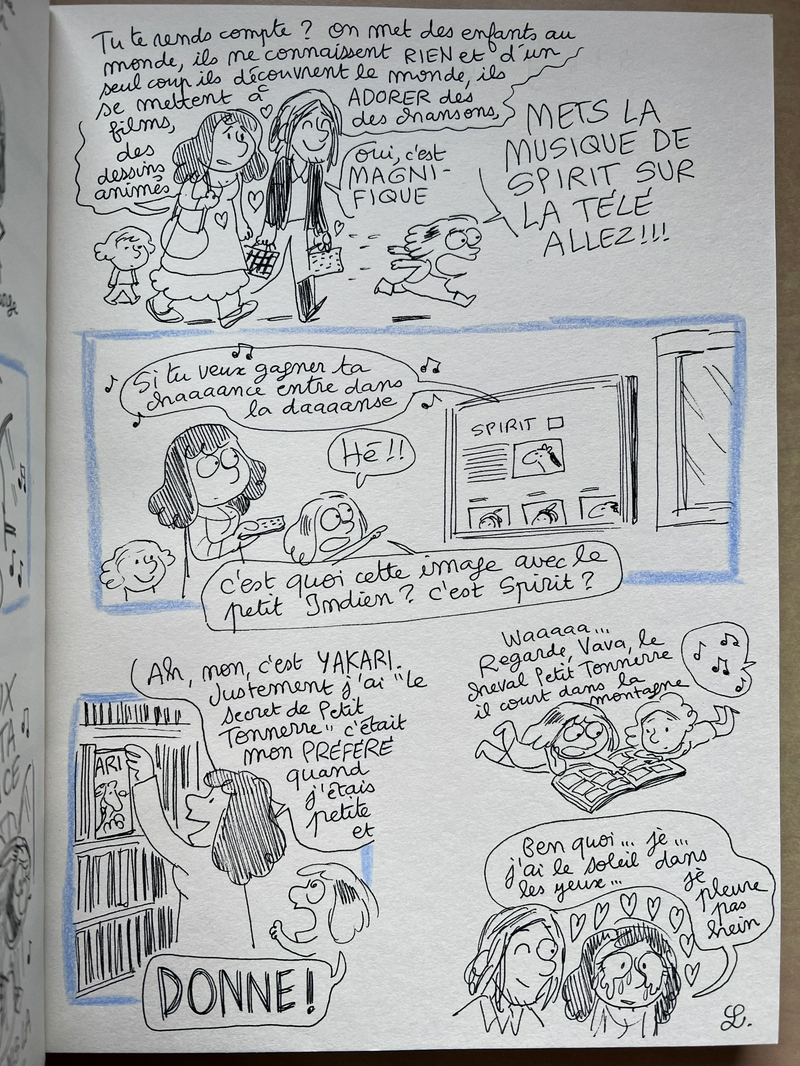 Tu te rends compte ? On met des enfants au
monde, ils ne connaissent RIEN et d'un
seul coup ils découvrent le monde, ils
se mettent à
ADORER des
films,
des chansons,
des
dessins
animés
Oui, c'est
MAGNI-
FIQUE
METS LA
MUSIQUE DE
SPIRIT SUR
LA TÉLÉ
ALLEZ!!!
Si tu veux gagner ta
chaaaance entre dans
la daaaanse
SPIRIT
Hé !!
c'est quoi cette image avec le
petit Indien ? c'est Spirit ?
Ah, non, c'est YAKARI.
Justement j'ai "le
secret de Petit
Tonnerre" c'était
mon PRÉFÉRÉ
quand
j'étais
petite
et
ARI
DONNE !
Waaaaa...
Regarde, Vava, le
cheval Petit Tonnerre
il court dans la
montagne
Ben quoi... je...
j'ai le soleil dans
les yeux...
je
pleure
pas
hein
L.